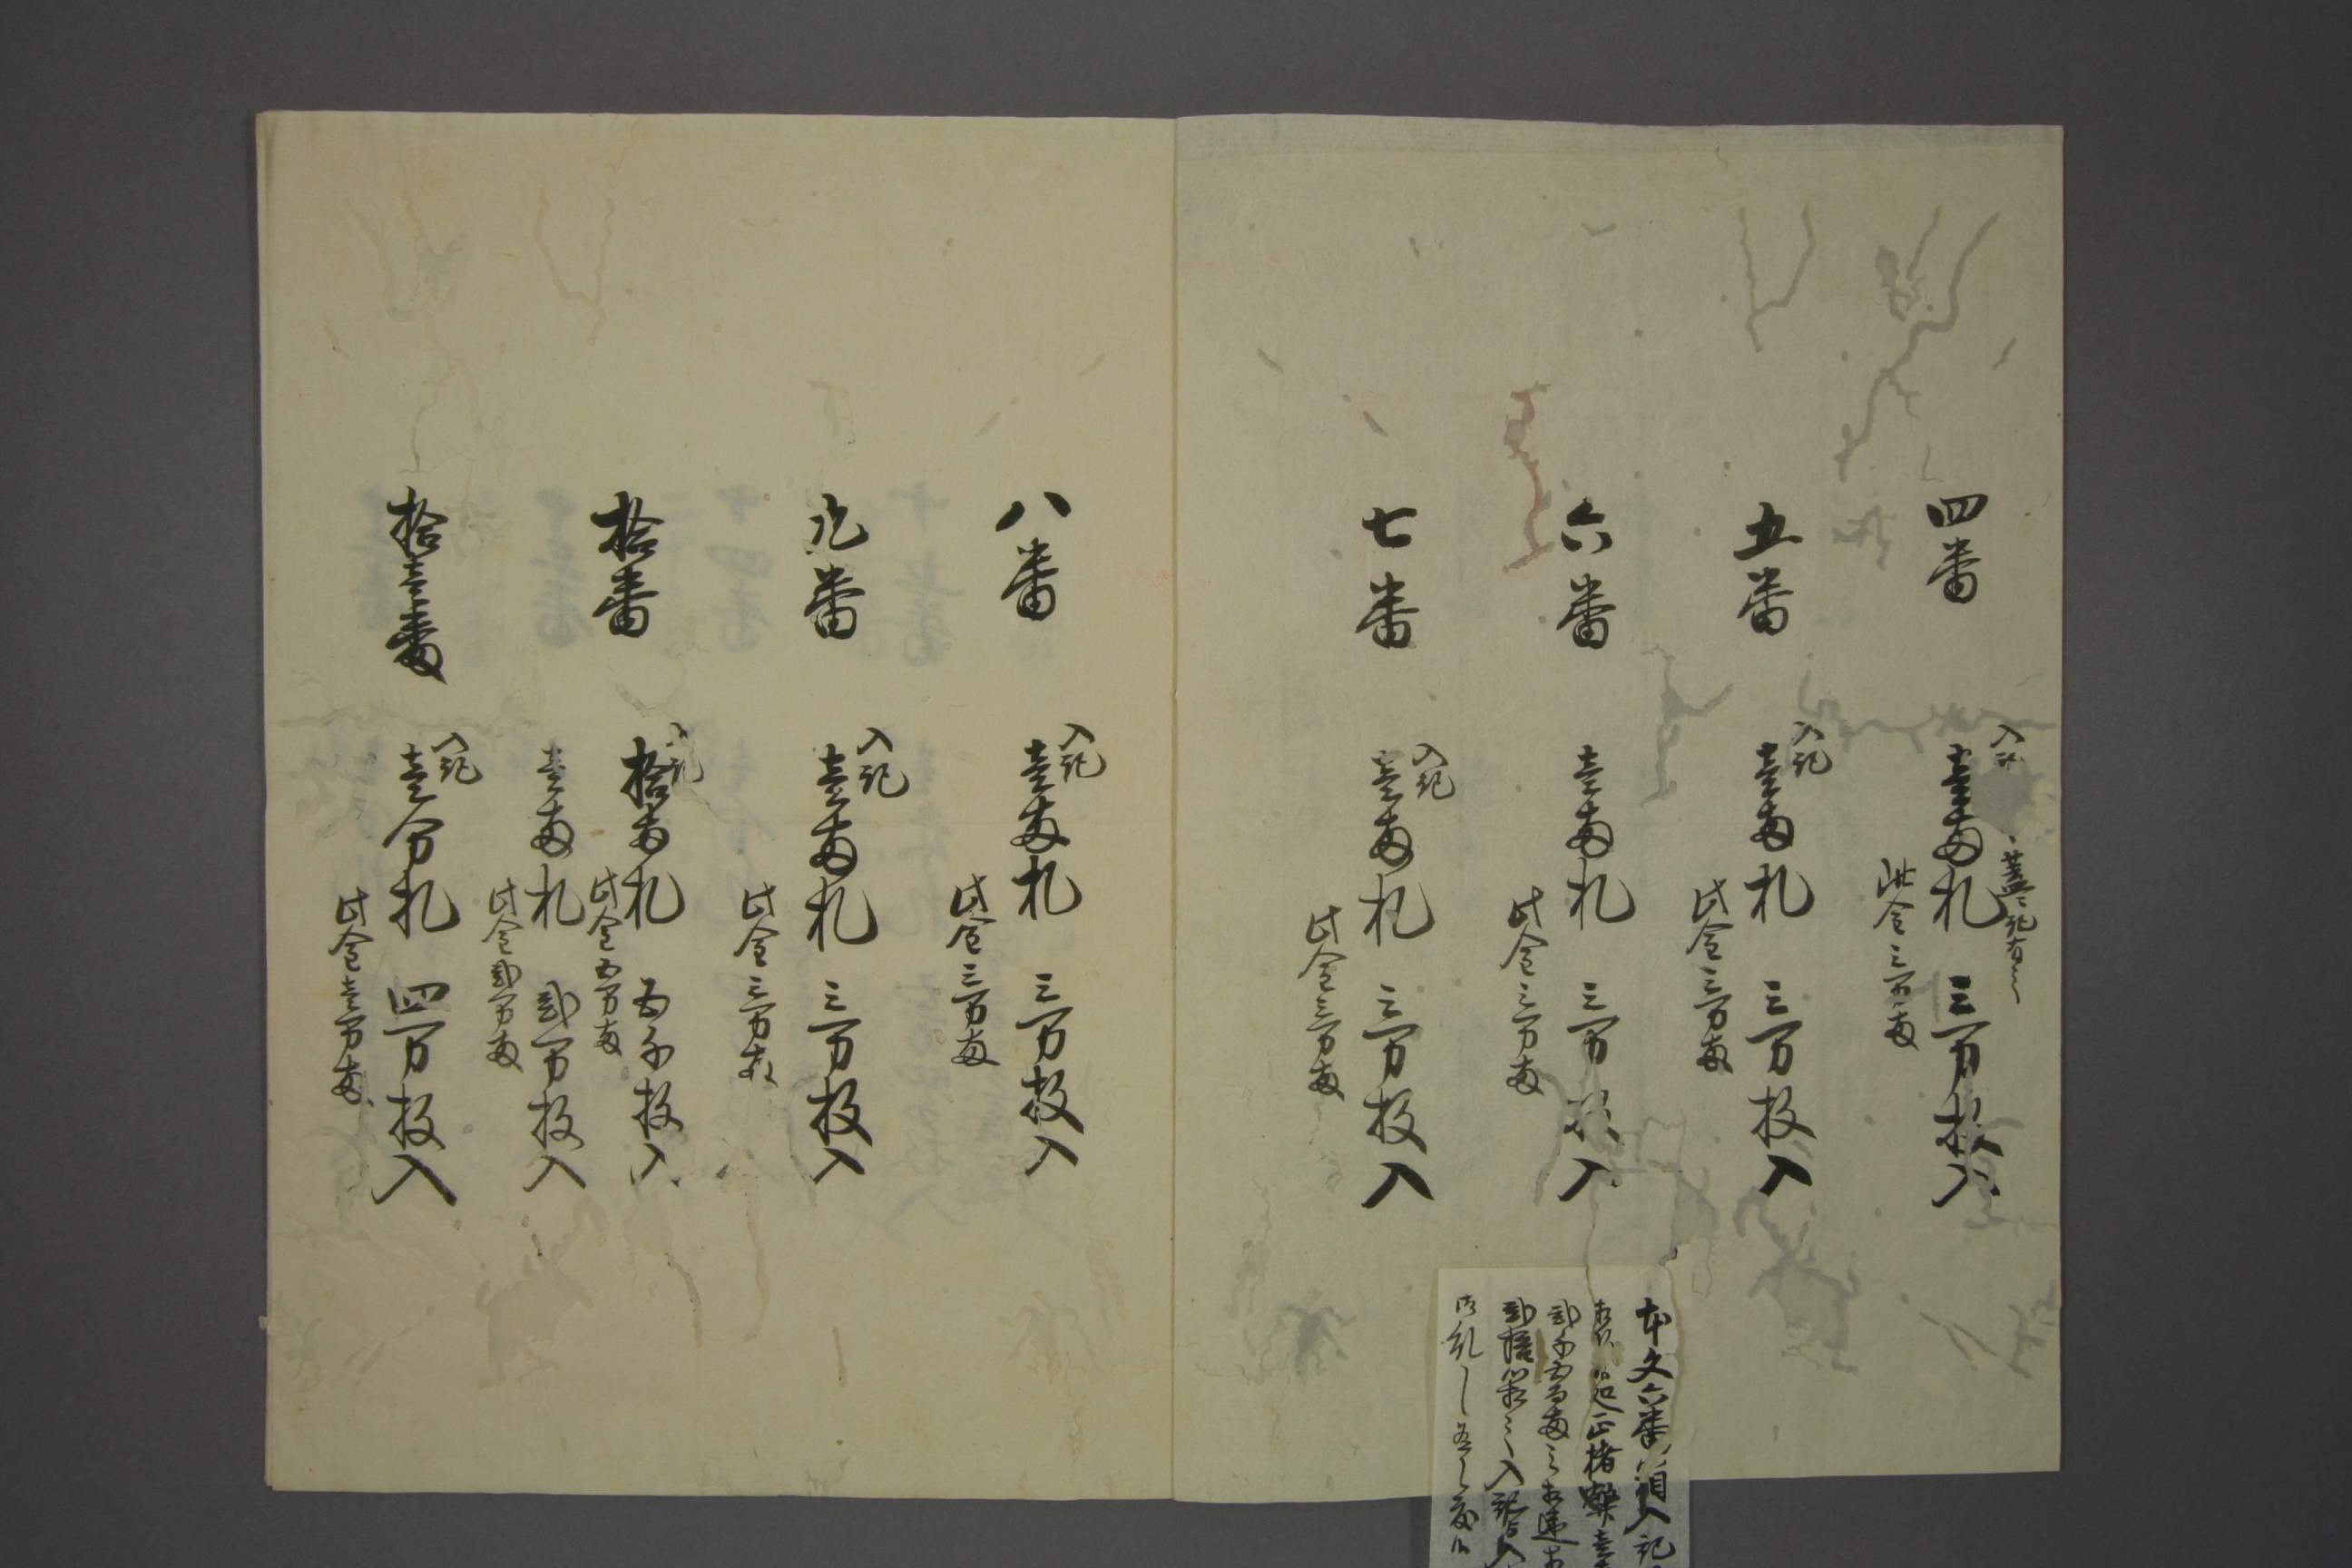 四番
入記
壱両札 三万枚入
蓋ニ記有之
此金三万両
五番
入記
壱両札 三万枚入
此金三万両
六番
壱両札 三万枚入
此金三万両
七番
入記
壱両札 三万枚入
此金三万両
本文六番箱入記
弐千五百両之相違
弐拾
八番
入記
壱両札 三万枚入
此金三万両
九番
入記
壱両札 三万枚入
此金三万両
拾番
入記
拾両札 五千枚入
此金五万両
壱両札 弐万枚入
此金弐万両
拾壱番
入記
壱分札 四万枚入
此金壱万両